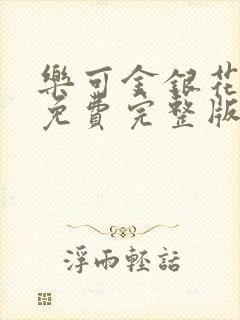 樂可金銀花
免費完整版
浮雨輕話